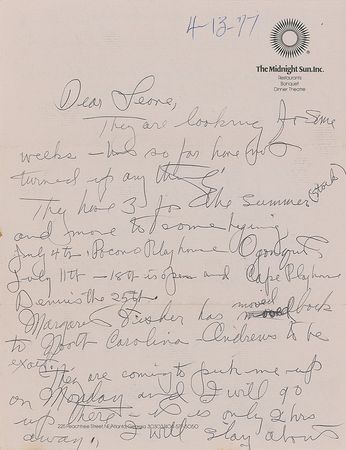 4-13-77
The Midnight Sun, Inc.
Restaurants
Banquet
Dinner Theatre
Dear Leone,
They are looking for some
weeks - but so far have not
turned up any thing.
They have 3 for the summer (stock)
and more to some
July 4th Pocono Playhouse Ogunquit
July 11th - 18th is open and Cape Playhouse
Dennis the 25th.
Margaret Fisher has moved back
to North Carolina - Andrews to be
exact.
They are coming to pick me up
on Monday and I will go
up there - it is only 2 hrs
away, I will stay about
225 Peachtree Street N.E. Atlanta, Georgia